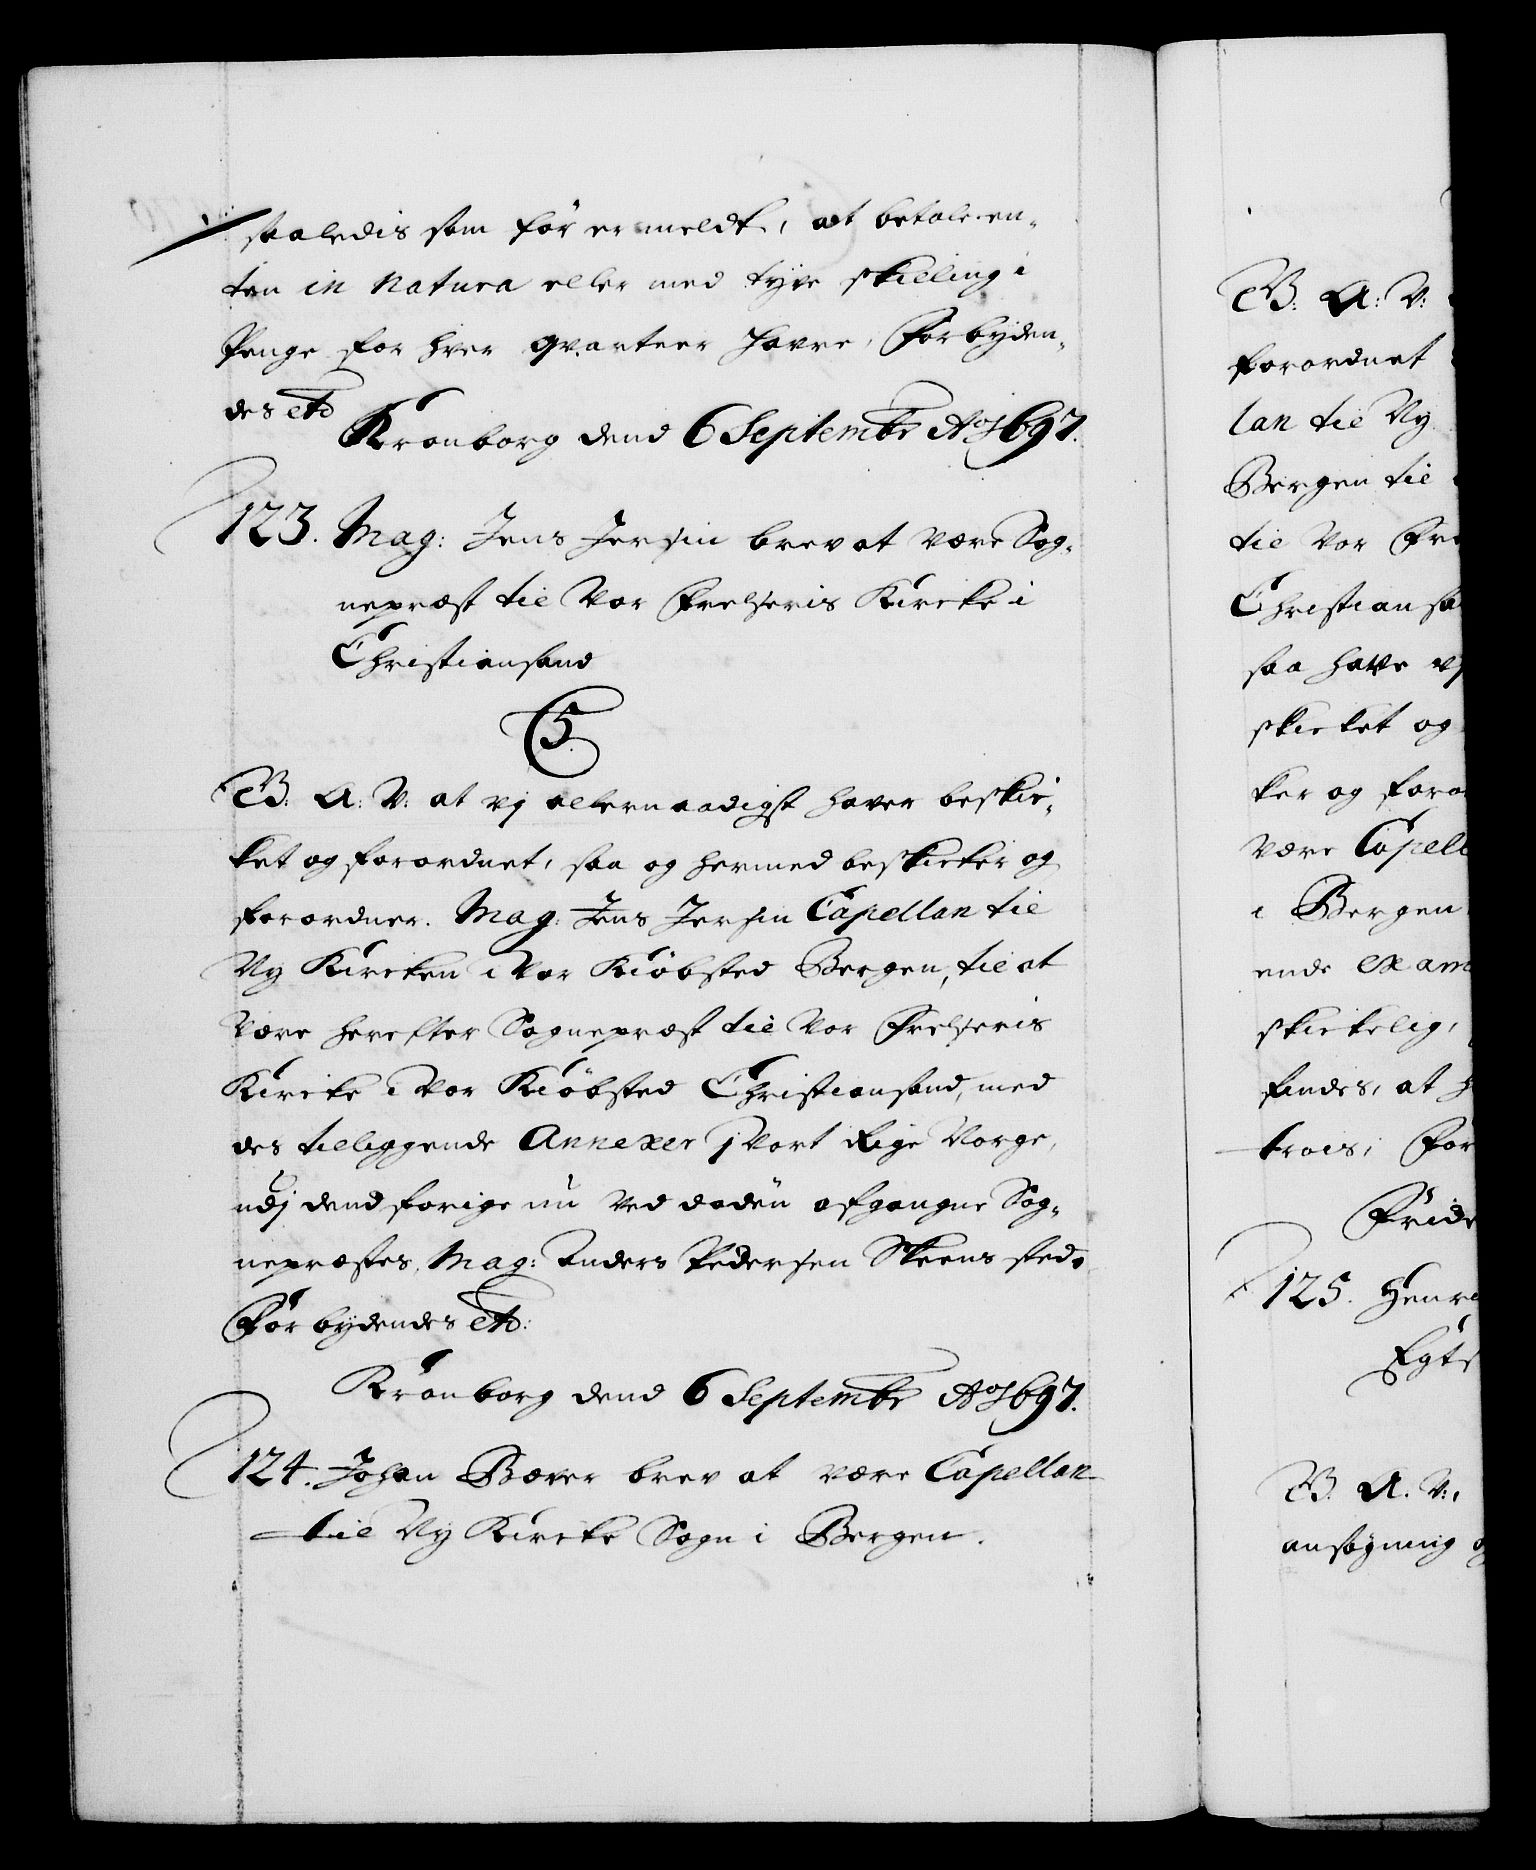 saaledis som før er meldt, at betale en-
ten in Natura eller med tyve skilling i
Penge for hver qvarteer Havre, Forbyden-
des etc
Kronborg dend 6 Septembr Ao 1697.
123. Mag: Jens Jersin brev at være Sog-
nepræst til Vor Frelseris Kircke i
Christiansand
C5.
G. A: V: at vj allernaadigst haver beskic-
ket og forordnet, saa og hermed beskicker og
forordner. Mag: Jens Jersin Capellan til
Ny Kircken i Vor Kiøbsted Bergen, til at
være herefter Sognepræst til Vor Frelseris
Kircke i Vor Kiøbsted Christiansand, med
des tilliggende Annexer j Vort Rige Norge,
udj dend forige nu ved døden afgangne Sog-
nepræstes, Mag: Anders Pedersen Skeens sted.
Forbydendes etc:
Kronborg dend 6 Septembr Ao 1697.
124. Johan Bæver brev at være Capellan
til Ny Kircke Sogn i Bergen.
G. A: V:
forordnet
lan til Ny
Bergen til
til Vor Fre
Christiansa
saa have vj
skicket og
ker og foror
være Capell
i Bergen
ende exam
skickelig,
findes, at h
trois, For
Fride
125. Henr
Egts
G. A. V:,
ansøgning og